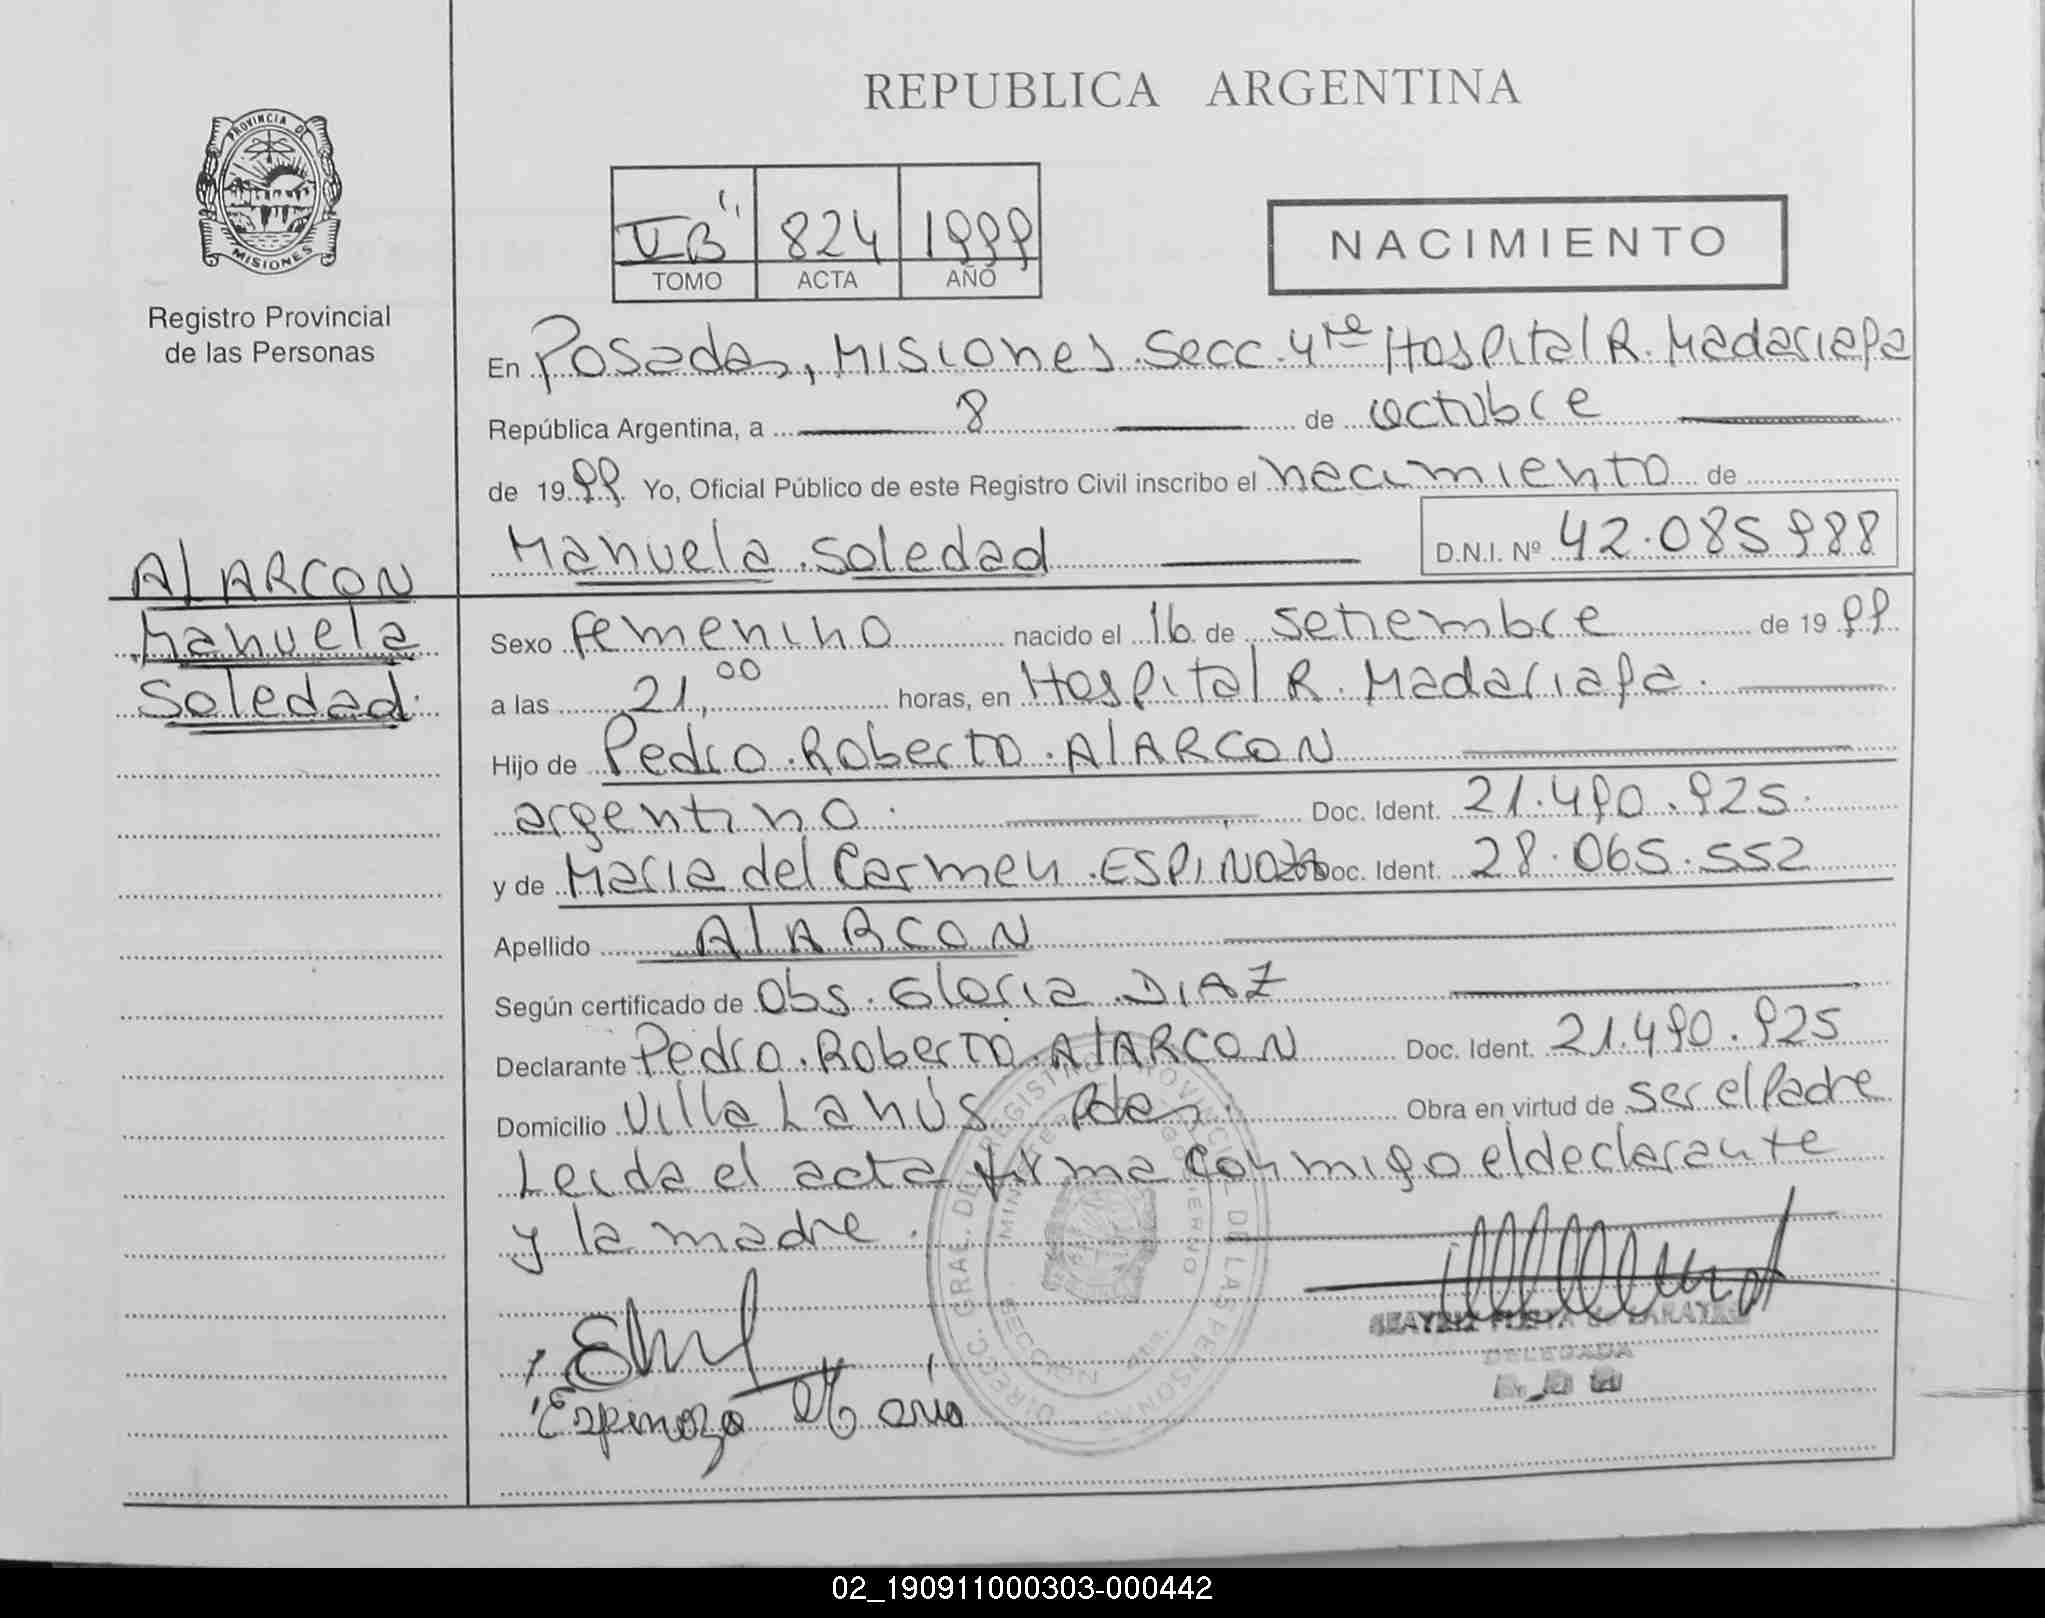 PROVINCIA DE
MISIONES
Registro Provincial
de las Personas
ALARCON
Manuela
Soledad.
REPUBLICA ARGENTINA
824 1999
TOMO ACTA AÑO
NACIMIENTO
En Posadas, Misiones. Secc. 4ta Hospital R. Madariaga
República Argentina, a 8 de octubre
de 1999. Yo, Oficial Público de este Registro Civil inscribo el nacimiento de
Manuela Soledad
D.N.I. Nº 42.085988
Sexo femenino nacido el 16 de setiembre de 1999
a las 21,00 horas, en Hospital R. Madariaga.
Hijo de Pedro Roberto ALARCON
argentino. Doc. Ident. 21.490.925.
y de Maria del Carmen ESPINOZA Doc. Ident. 28.065.552
Apellido ALARCON
Según certificado de Obs. Gloria DIAZ
Declarante Pedro Roberto ALARCON Doc. Ident. 21.490.925
Domicilio Villa Lanús Pdas. Obra en virtud de ser el Padre
Leida el acta firma conmigo el declarante
y la madre.
DIRECC. GRAL. DEL REGISTRO PROVINCIAL DE LAS PERSONAS
MINISTERIO GOBIERNO
SECCION
DELEGADA
Espinoza Maria
02_190911000303-000442